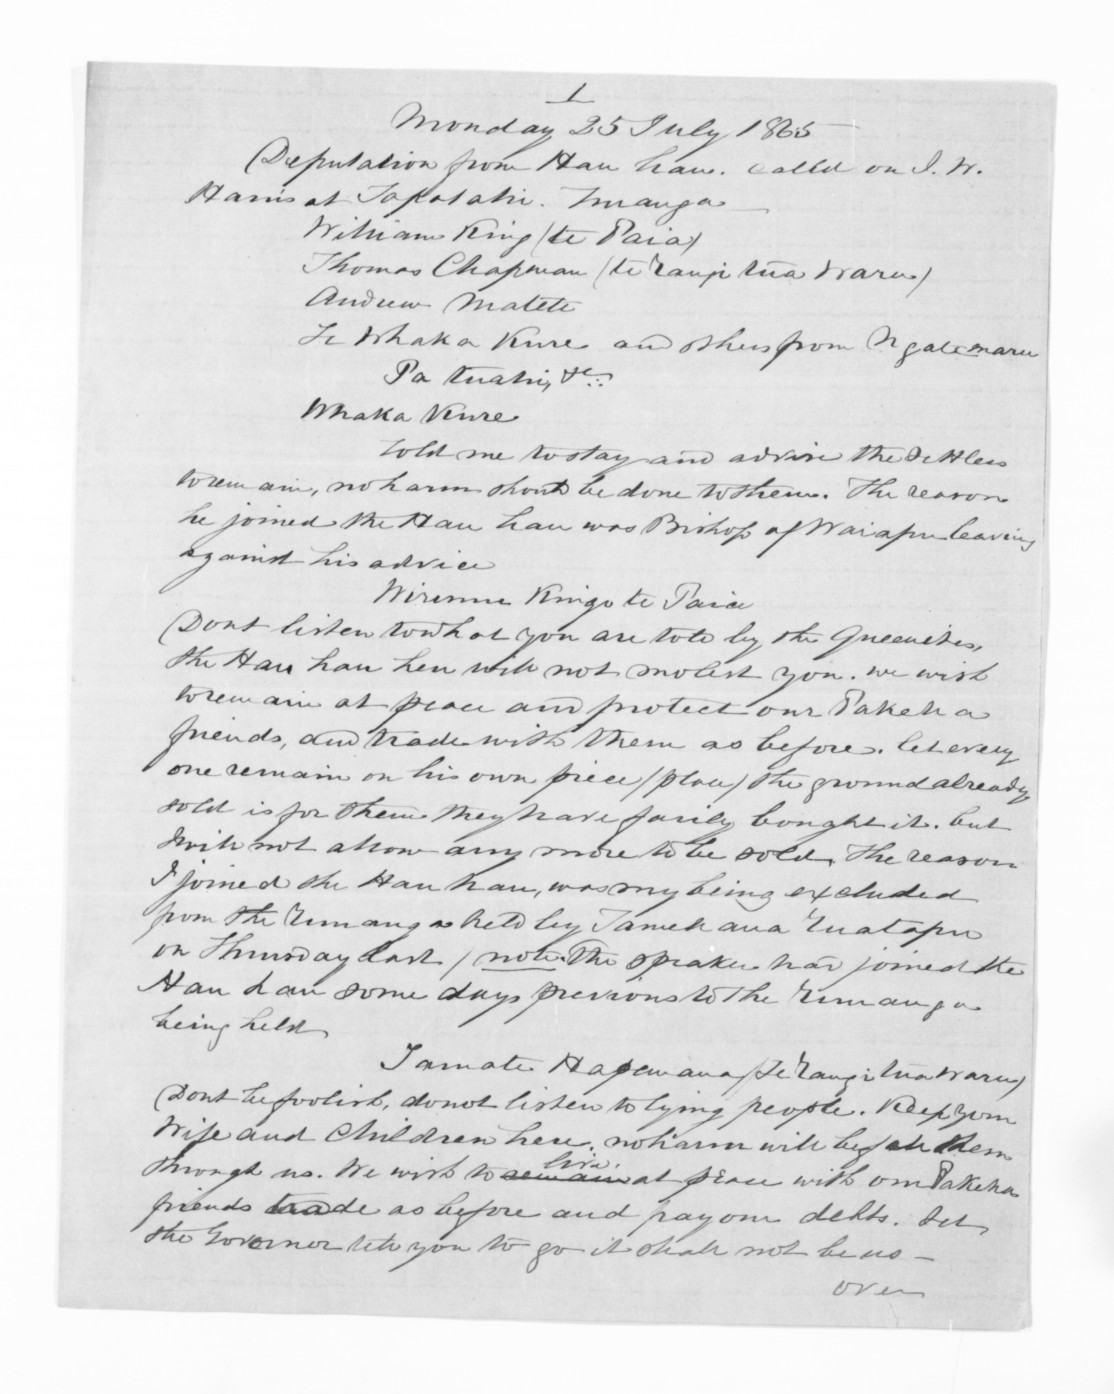 1
Monday 25 July 1865
Deputation from Hau hau. called on J. W.
Harris at Tapatahi. Turanga
William King (te Paia)
Thomas Chapman (te Rangi tua Waru)
Andrew Matete
Te Whaka Kure and others from Ngatemaru
Pa tuahi, &c
Whaka Kure
told me to stay and advise the Settlers
to remain, no harm should be done to them. The reason
he joined the Hau hau was Bishop of Waiapu leaving
against his advice
Wiremu Kingi te Paia
Dont listen to what you are told by the Queenites,
the Hau hau hen will not molest you. we wish
to remain at peace and protect our Pakeha
friends, and trade with them as before. let every
one remain on his own piece (place) the ground already
sold is for them they have fairly bought it. but
I will not allow any more to be sold. The reason
I joined the Hau hau, was my being excluded
from the Runanga held by Tamehana Ruatapu
on Thursday last (note. The speaker had joined the
Hau hau some days previous to the Runanga
being held
Tamate Hapemana (Te Rangi tua Waru)
Dont be foolish, do not listen to lying people. Keep your
Wife and Children here. no harm will befall them
through us. We wish to remain live at peace with our Pakeha
friends trade as before and pay our debts. Let
the Governor tell you to go it shall not be us —
over